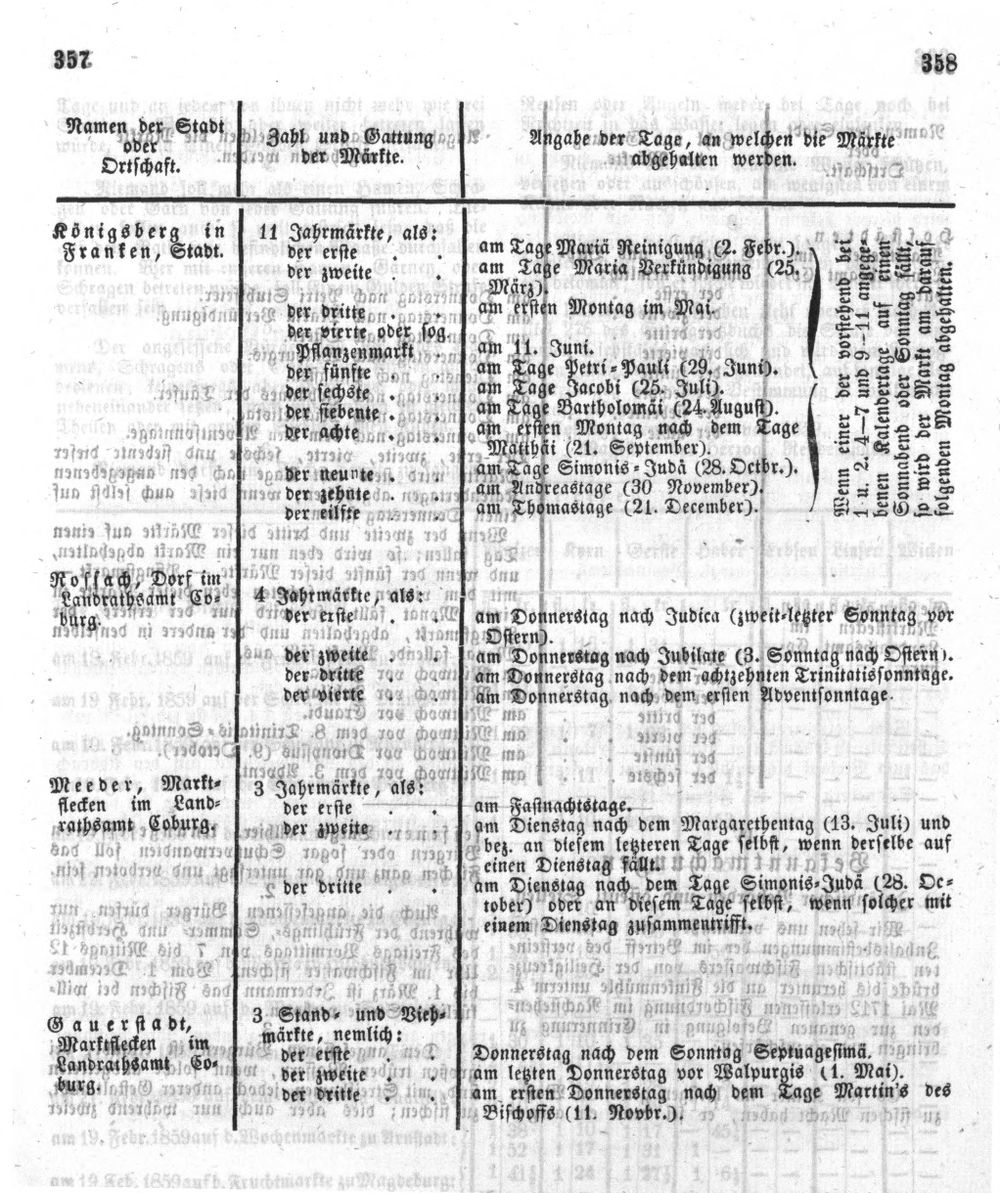 357
358
Namen der Stadt
oder
Ortschaft.
Zahl und Gattung
der Märkte.
Angabe der Tage, an welchen die Märkte
abgehalten werden.
Königsberg in
Franken, Stadt.
11 Jahrmärkte, als:
der erste . . am Tage Mariä Reinigung (2. Febr.).
der zweite . . am Tage Maria Verkündigung (25.
März).
der dritte . . am ersten Montag im Mai.
der vierte oder sog.
Pflanzenmarkt . am 11. Juni.
der fünfte . . am Tage Petri-Pauli (29. Juni).
der sechste . . am Tage Jacobi (25. Juli).
der siebente . . am Tage Bartholomäi (24. August).
der achte . . am ersten Montag nach dem Tage
Matthäi (21. September).
der neunte . . am Tage Simonis-Judä (28. Octbr.).
der zehnte . . am Andreastage (30 November).
der eilfte . . am Thomastage (21. December).
Wenn einer der vorstehend bei
1 u. 2. 4–7 und 9–11 angege-
benen Kalendertage auf einen
Sonnabend oder Sonntag fällt,
so wird der Markt am darauf
folgenden Montag abgehalten.
Rossach, Dorf im
Landrathsamt Co-
burg.
4 Jahrmärkte, als:
der erste . . am Donnerstag nach Judica (zweit-letzter Sonntag vor
Ostern).
der zweite . . am Donnerstag nach Jubilate (3. Sonntag nach Ostern).
der dritte . . am Donnerstag nach dem achtzehnten Trinitatissonntage.
der vierte . . am Donnerstag nach dem ersten Adventsonntage.
Meeder, Markt-
flecken im Land-
rathsamt Coburg.
3 Jahrmärkte, als:
der erste . . am Fastnachtstage.
der zweite . . am Dienstag nach dem Margarethentag (13. Juli) und
bez. an diesem letzteren Tage selbst, wenn derselbe auf
einen Dienstag fällt.
der dritte . . am Dienstag nach dem Tage Simonis-Judä (28. Oc-
tober) oder an diesem Tage selbst, wenn solcher mit
einem Dienstag zusammentrifft.
Gauerstadt,
Marktflecken im
Landrathsamt Co-
burg.
3 Stand- und Vieh-
märkte, nemlich:
der erste . . Donnerstag nach dem Sonntag Septuagesimä.
der zweite . . am letzten Donnerstag vor Walpurgis (1. Mai).
der dritte . . am ersten Donnerstag nach dem Tage Martin's des
Bischoffs (11. Novbr.).